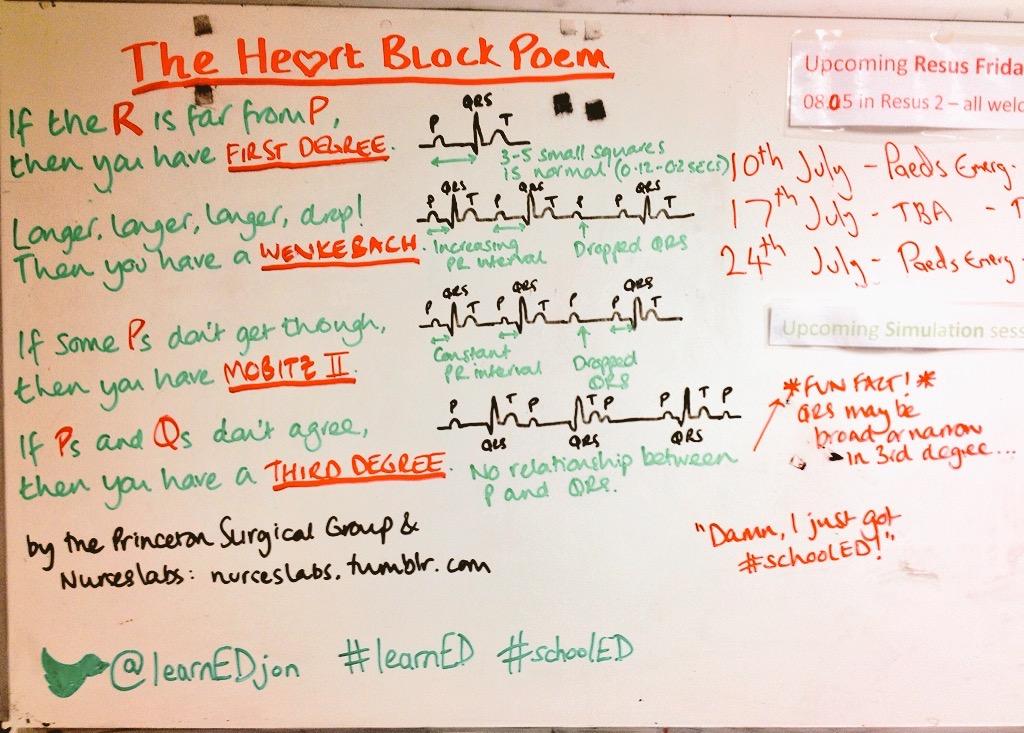 The Heart Block Poem
If the R is far from P,
then you have FIRST DEGREE.
QRS
P T
3-5 small squares
is normal (0.12-0.2 secs)
Longer, longer, longer, drop!
Then you have a WENKEBACH.
QRS QRS QRS
P T P T P P T
Increasing
PR interval
Dropped QRS
If some Ps don't get though,
then you have MOBITZ II.
QRS QRS QRS
P T P T P P T
Constant
PR interval
Dropped
QRS
If Ps and Qs don't agree,
then you have a THIRD DEGREE.
P T P T P P T P
QRS QRS QRS
No relationship between
P and QRS.
by the Princeton Surgical Group &
Nurseslabs: nurseslabs.tumblr.com
@learnEDjon #learnED #schoolED
Upcoming Resus Frida
08.05 in Resus 2 – all welc
10th July - Paeds Emerg.
17th July - TBA - T
24th July - Paeds Emerg
Upcoming Simulation sess
*FUN FACT!*
QRS may be
broad or narrow
in 3rd degree...
"Damn, I just got
#schoolED!"